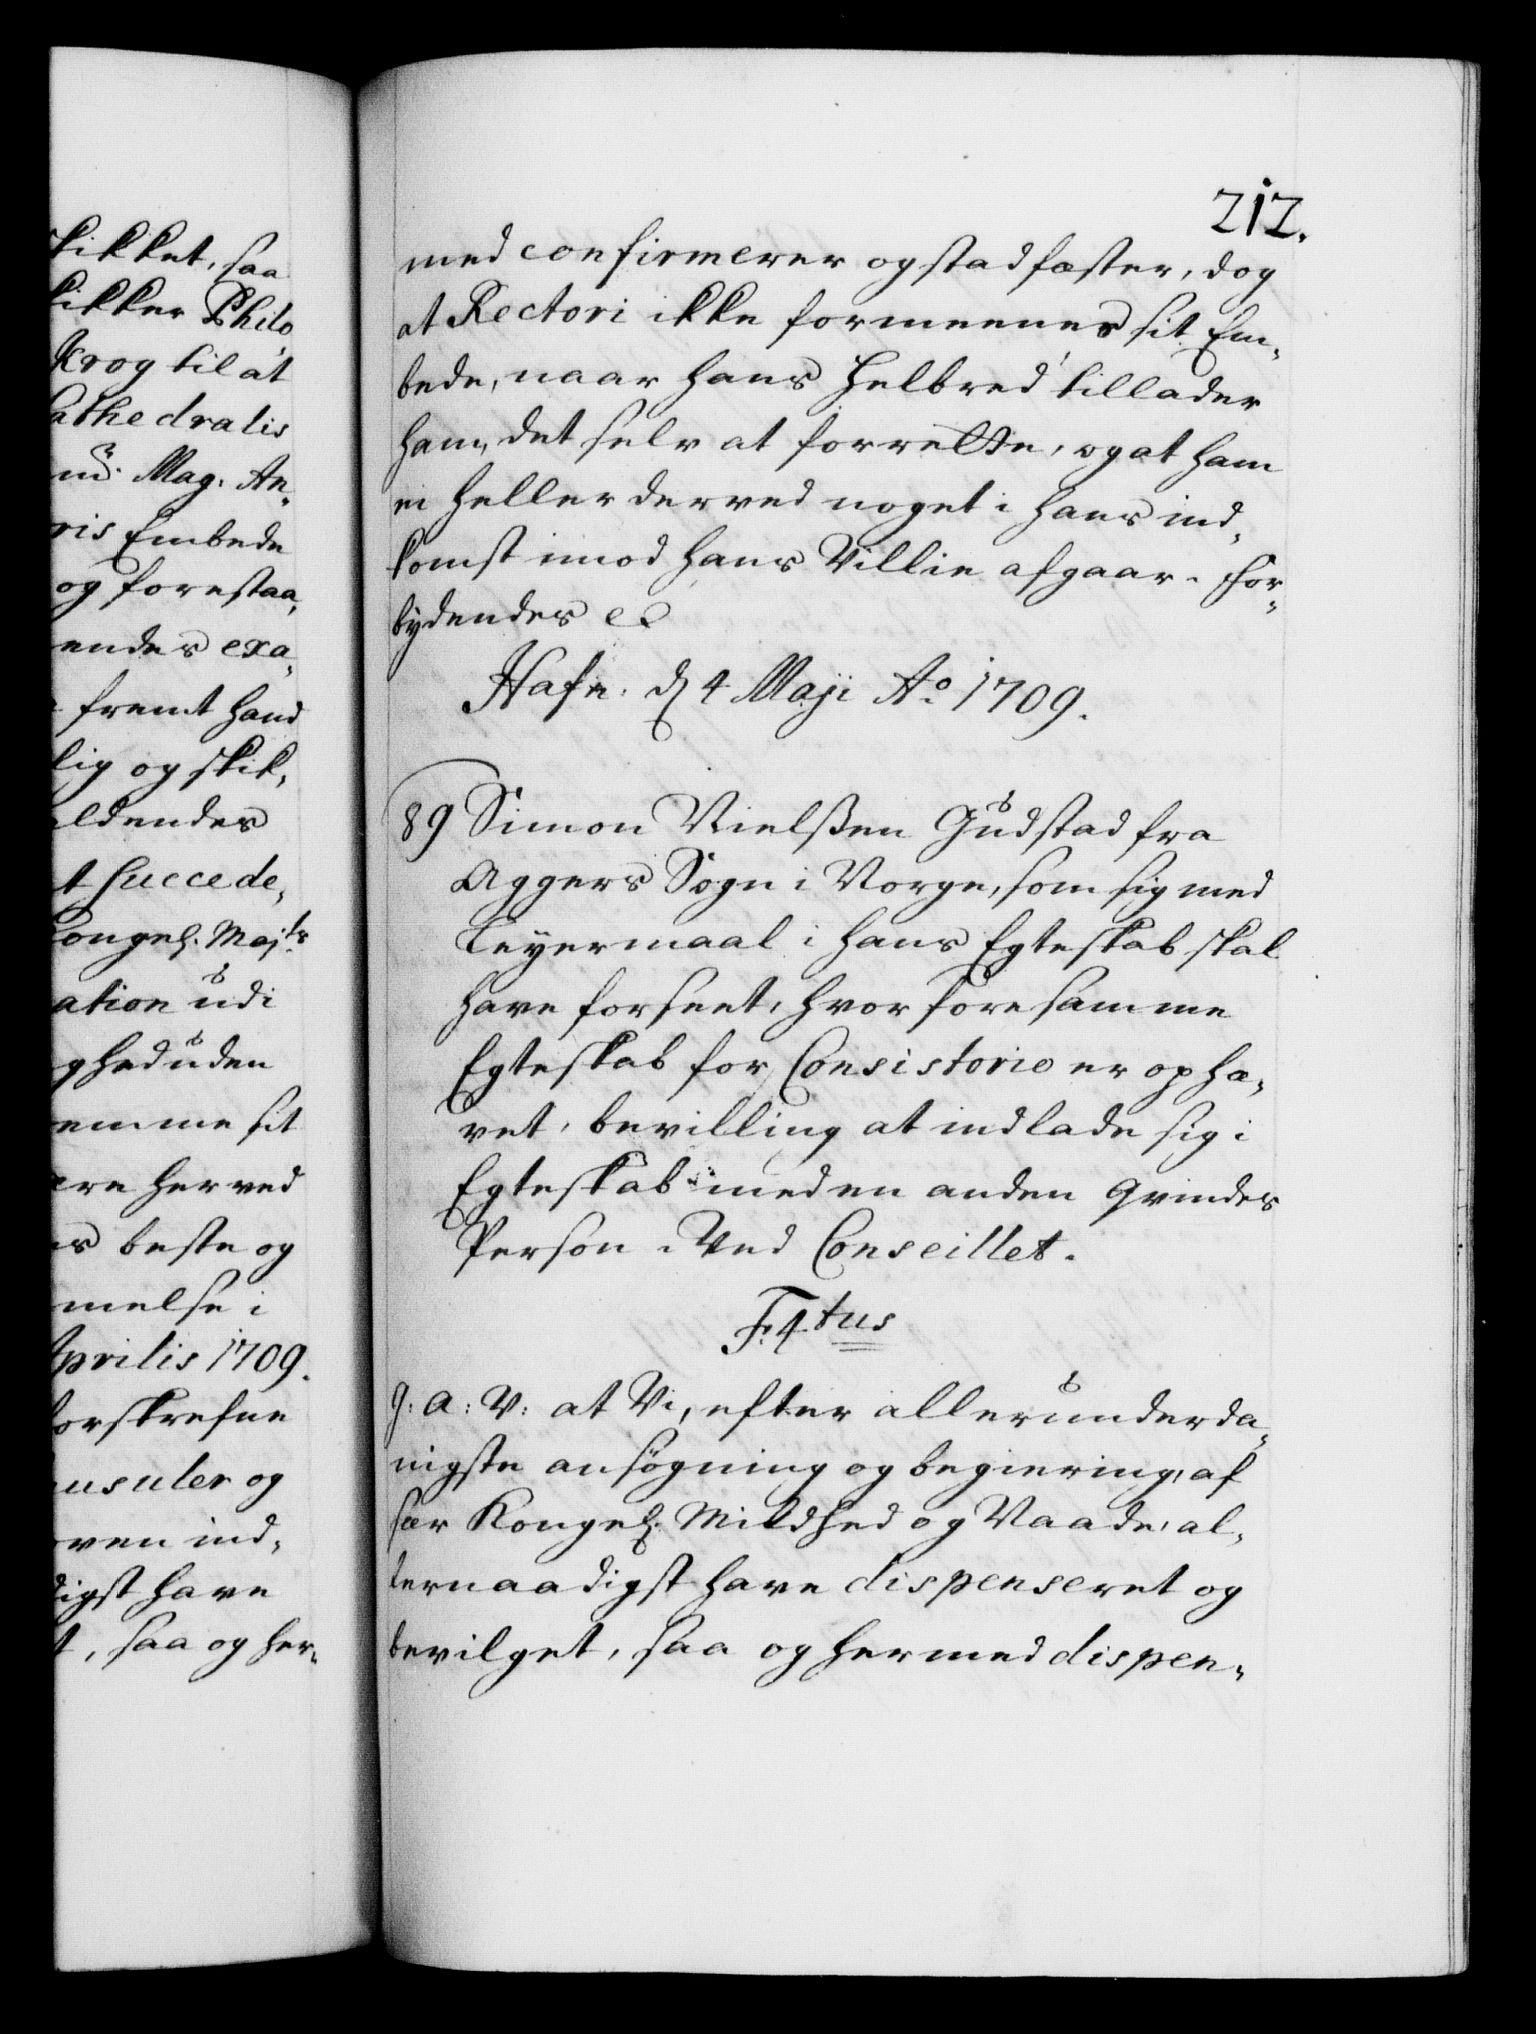 skikket, saa
kikker Philo
Krog til at
Cathedralis
Mag. An„
ris Embede
og forestaa„
endes exa„
fremt hand
lig og skik„
ldendes
t succede„
Kongel. Majts
ation udi
ghed uden
emme sit
ere herved
beste og
melse i
Aprilis 1709.
forskrefne
nsuler og
oven ind„
digst have
t, saa og her„
212.
med confirmerer og stadfæster, dog
at Rectori ikke formeenes sit Em„
bede, naar hans Helbred tillader
ham, det selv at forrette, og at ham
ei heller derved noget i hans ind„
komst imod hans Villie afgaar. For„
bydendes ec
Hafn. d 4 Maji Ao 1709.
89 Simon Nielssen Gudstad fra
Aggers Sogn i Norge, som sig med
Leyermaal i hans Egteskab skal
have forseet, hvorfore samme
Egteskab for Consistorio er ophæ„
vet, bevilling at indlade sig i
Egteskab med en anden Qvindes
Person. Ved Conseillet.
F. 4tus
G: A: V: at Vi, efter allerunderda„
nigste ansøgning og begiering, af
sær Kongel. Mildhed og Naade, al„
lernaadigst have dispenseret og
bevilget, saa og hermed dispen„